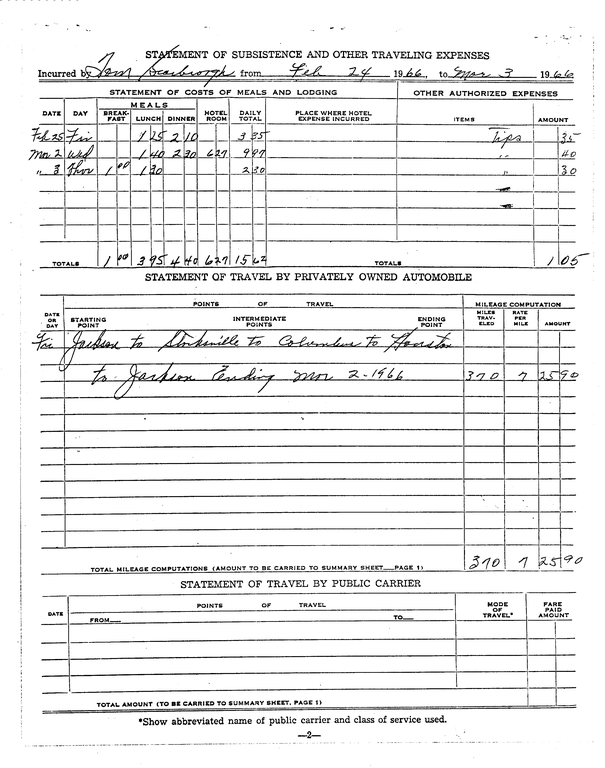 STATEMENT OF SUBSISTENCE AND OTHER TRAVELING EXPENSES
Incurred by Tom Scarbrough from Feb 24 1966, to Mar 3 1966
STATEMENT OF COSTS OF MEALS AND LODGING OTHER AUTHORIZED EXPENSES
DATE DAY MEALS BREAK-FAST LUNCH DINNER HOTEL ROOM DAILY TOTAL PLACE WHERE HOTEL EXPENSE INCURRED ITEMS AMOUNT
Feb 25 Fri 1 25 2 10 3 35 Tips 35
Mar 2 Wed 1 40 2 30 6 27 9 97 " 40
" 3 Thur 1 00 1 30 2 30 " 30
TOTALS 1 00 3 95 4 40 6 27 15 62 TOTALS 1 05
STATEMENT OF TRAVEL BY PRIVATELY OWNED AUTOMOBILE
POINTS OF TRAVEL MILEAGE COMPUTATION
DATE OR DAY STARTING POINT INTERMEDIATE POINTS ENDING POINT MILES TRAV-ELED RATE PER MILE AMOUNT
Fri Jackson to Starksville to Columbus to Houston
to Jackson Ending Mar 2-1966 370 7 25 90
TOTAL MILEAGE COMPUTATIONS (AMOUNT TO BE CARRIED TO SUMMARY SHEET__PAGE 1) 370 7 25 90
STATEMENT OF TRAVEL BY PUBLIC CARRIER
DATE POINTS OF TRAVEL MODE OF TRAVEL* FARE PAID AMOUNT
FROM__ TO__
TOTAL AMOUNT (TO BE CARRIED TO SUMMARY SHEET, PAGE 1)
*Show abbreviated name of public carrier and class of service used.
—2—